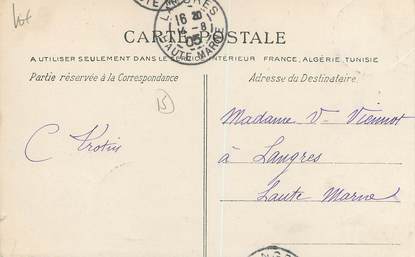 Lot
LANGRES
16 20
14 - 8
05
HAUTE-MARNE
CARTE POSTALE
A UTILISER SEULEMENT DANS LE SERVICE INTÉRIEUR FRANCE, ALGÉRIE, TUNISIE
Partie réservée à la Correspondance
Adresse du Destinataire.
15
Madame V- Viennot
à Langres
Haute Marne
C